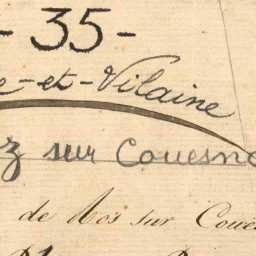 - 35 -
e-et-Vilaine
z sur Couesno
de Bos sur Coues